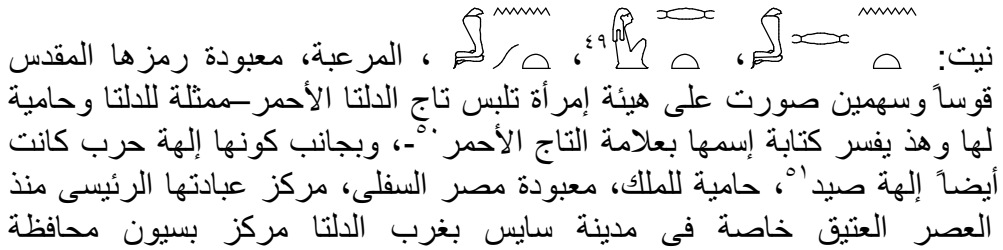 نيت: ، ٤٩، ، المرعبة، معبودة رمزها المقدس
قوساً وسهمين صورت على هيئة إمرأة تلبس تاج الدلتا الأحمر–ممثلة للدلتا وحامية
لها وهذ يفسر كتابة إسمها بعلامة التاج الأحمر٥٠-، وبجانب كونها إلهة حرب كانت
أيضاً إلهة صيد٥١، حامية للملك، معبودة مصر السفلى، مركز عبادتها الرئيسى منذ
العصر العتيق خاصة فى مدينة سايس بغرب الدلتا مركز بسيون محافظة